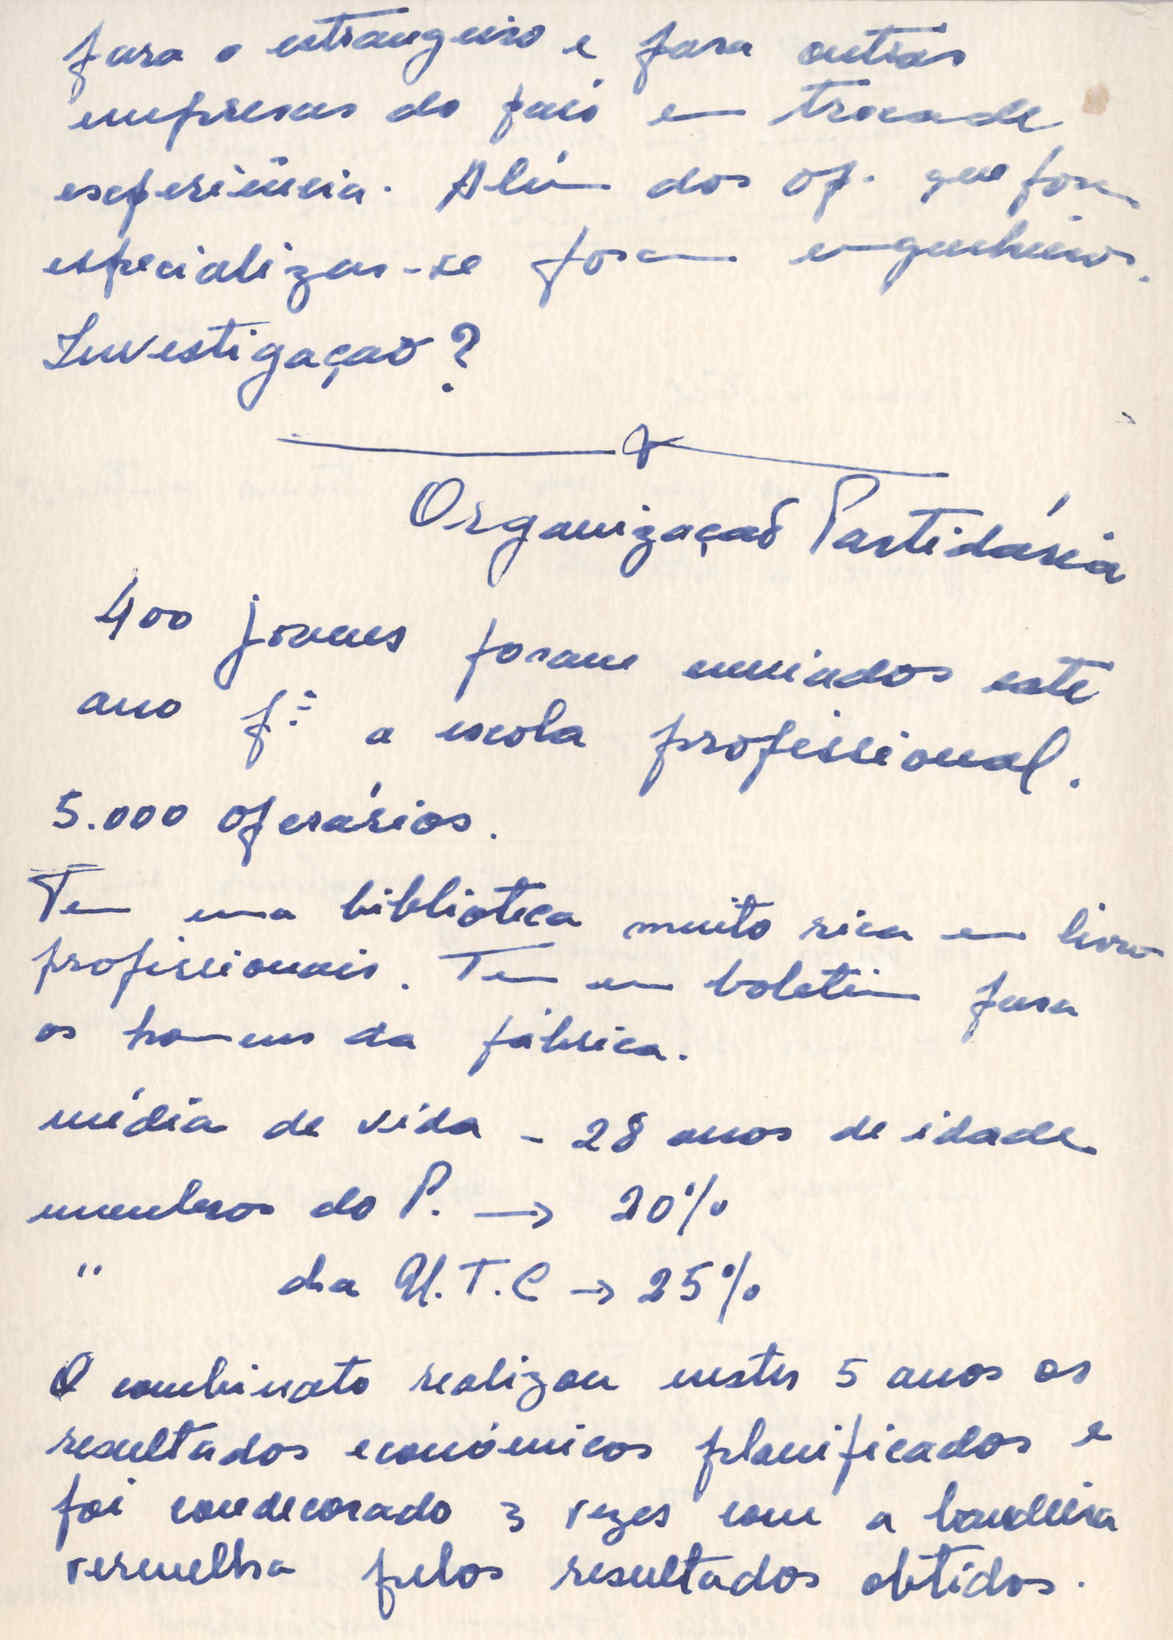 para o estrangeiro e para outras
empresas do país em troca de
experiência. Além dos op. que foram
especializar-se foram engenheiros.
Investigação?
Organização Partidária
400 jovens foram enviados este
ano pª a escola profissional.
5.000 operários.
Tem uma biblioteca muito rica em livros
profissionais. Tem um boletim para
os homens da fábrica.
média de vida - 28 anos de idade
membros do P. → 20%
" da U.T.C → 25%
O combinato realizou nestes 5 anos os
resultados económicos planificados e
foi condecorado 3 vezes com a bandeira
vermelha pelos resultados obtidos.